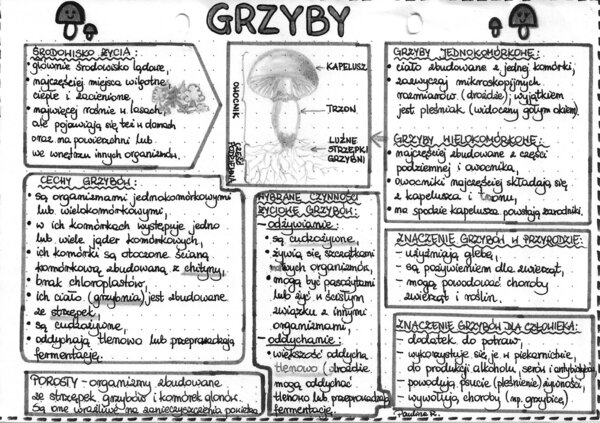 GRZYBY
ŚRODOWISKO ŻYCIA:
• głównie środowisko lądowe,
• najczęściej miejsca wilgotne,
ciepłe i zacienione,
• najwięcej rośnie w lasach,
ale pojawiają się też w domach
oraz na powierzchni lub
we wnętrzu innych organizmów.
OWOCNIK
CZĘŚĆ PODZIEMNA
KAPELUSZ
TRZON
LUŹNE
STRZĘPKI
GRZYBNI
GRZYBY JEDNOKOMÓRKOWE:
• ciało zbudowane z jednej komórki,
• zazwyczaj mikroskopijnych
rozmiarów (drożdże); wyjątkiem
jest pleśniak (widoczny gołym okiem).
GRZYBY WIELOKOMÓRKOWE:
• najczęściej zbudowane z części
podziemnej i owocnika,
• owocniki najczęściej składają się
z kapelusza i trzonu,
• na spodzie kapelusza powstają zarodniki.
CECHY GRZYBÓW:
• są organizmami jednokomórkowymi
lub wielokomórkowymi,
• w ich komórkach występuje jedno
lub wiele jąder komórkowych,
• ich komórki są otoczone ścianą
komórkową zbudowaną z chityny,
• brak chloroplastów,
• ich ciało (grzybnia) jest zbudowane
ze strzępek,
• są cudzożywne,
• oddychają tlenowo lub przeprowadzają
fermentację.
WYBRANE CZYNNOŚCI
ŻYCIOWE GRZYBÓW:
– odżywianie:
• są cudzożywne,
• żywią się szczątkami
organizmów,
• mogą być pasożytami
lub żyć w ścisłym
związku z innymi
organizmami,
– oddychanie:
• większość oddycha
tlenowo (drożdże
mogą oddychać
tlenowo lub przeprowadzać
fermentację.
ZNACZENIE GRZYBÓW W PRZYRODZIE:
– użyźniają glebę,
– są pożywieniem dla zwierząt,
– mogą powodować choroby
zwierząt i roślin.
ZNACZENIE GRZYBÓW DLA CZŁOWIEKA:
– dodatek do potraw,
– wykorzystuje się je w piekarnictwie,
do produkcji alkoholu, serów i antybiotyków,
– powodują psucie (pleśnienie) żywności,
– wywołują choroby (np. grzybice).
Paulina R.
POROSTY – organizmy zbudowane
ze strzępek grzybów i komórek glonów.
Są one wrażliwe na zanieczyszczenia powietrza